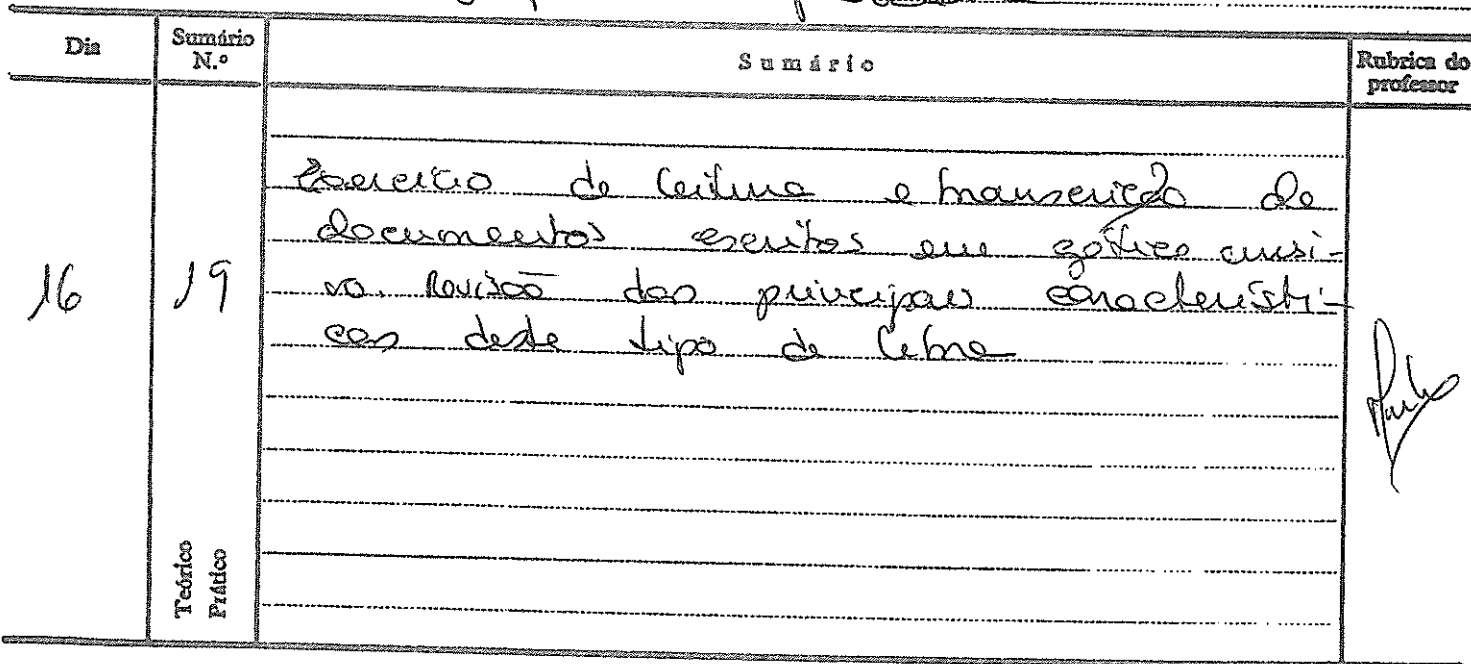 Dia
Sumário N.º
Sumário
Rubrica do professor
16
19
Exercício de leitura e transcrição de
documentos escritos em gótico cursi-
vo. Revisão das principais característi-
cas deste tipo de letra
Teórico
Prático